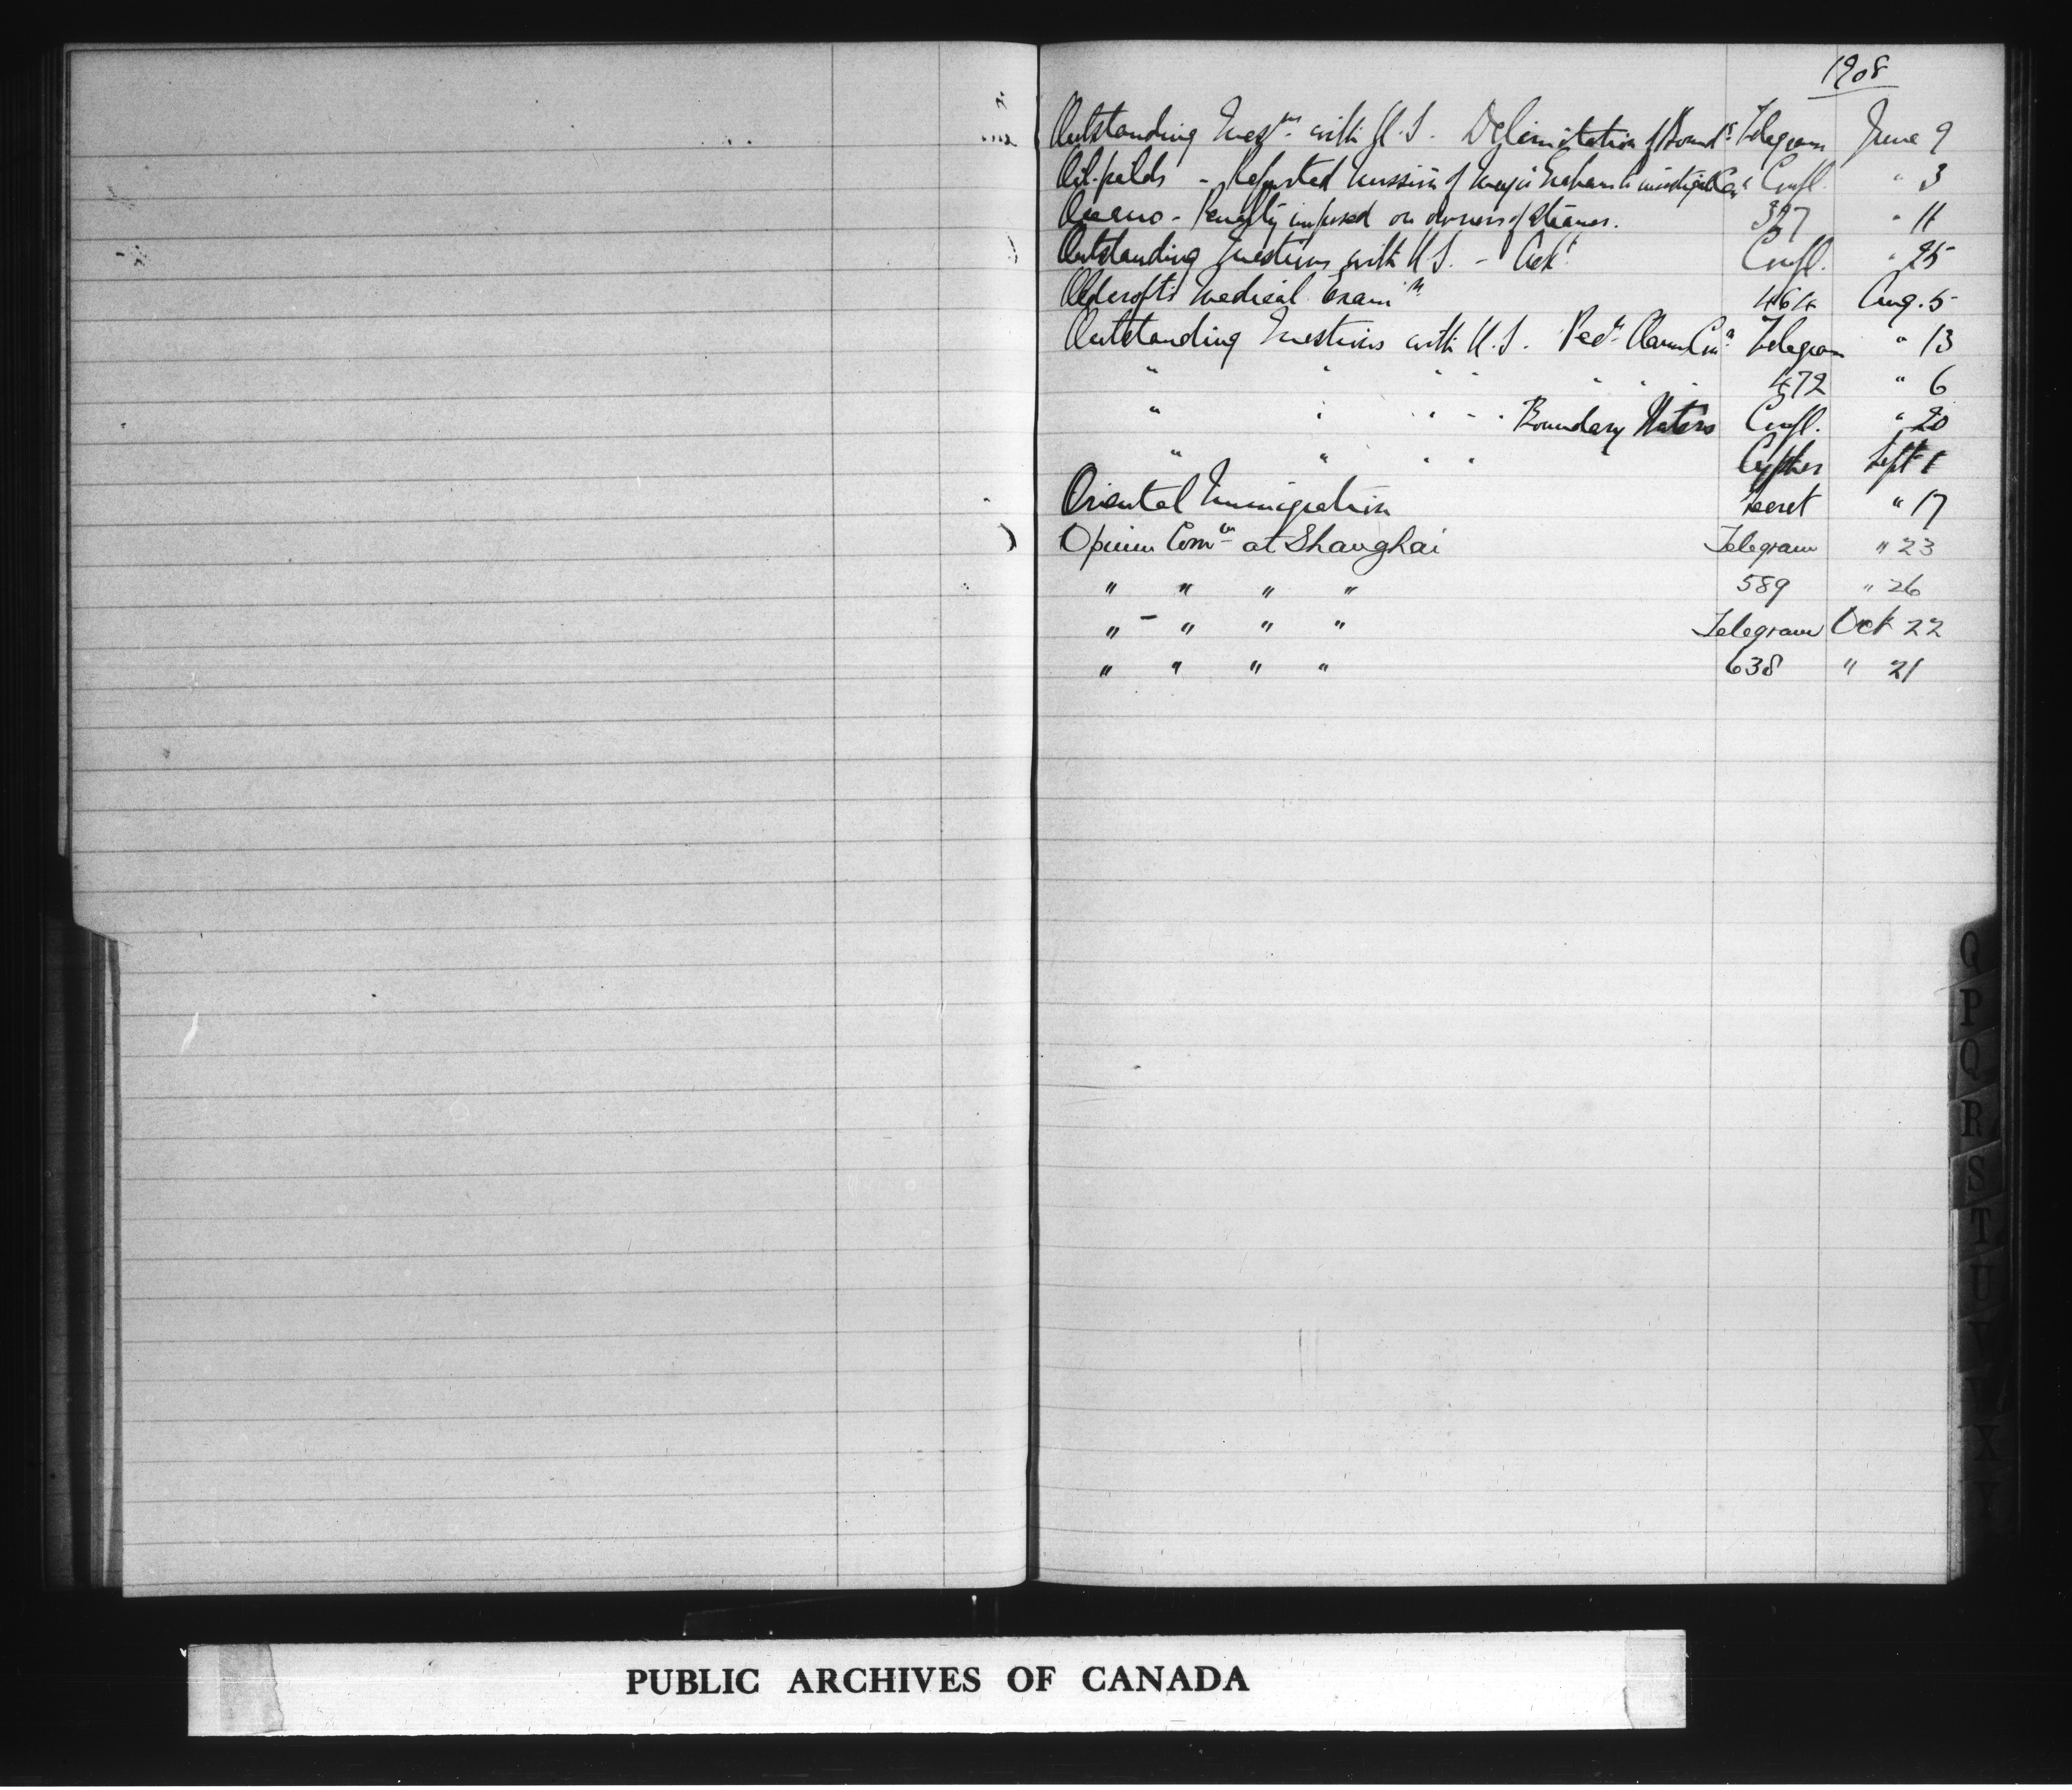 1908
Outstanding Quesns. with U.S. Delimitation of Boundy Telegram June 9
Oil-fields - Reported mission of Major to investigate Confl. " 3
Oceano - Penalty imposed on owners of Steamer. 327 " 11
Outstanding Questions with U.S. - Confl. " 25
Oldcroft's Medical Examn. 464 Aug. 5
Outstanding Questions with U.S. Pecy. Claims Telegram " 13
" " " " " " " 472 " 6
" " " " " Boundary Waters Confl. " 20
" " " " Cypher Sept 1
Oriental Immigration Secret " 17
Opium Comn at Shanghai Telegram " 23
" " " " 589 " 26
" - " " " Telegram Oct 22
" " " " 638 " 21
Q
P
Q
R
S
T
U
X
Y
PUBLIC ARCHIVES OF CANADA